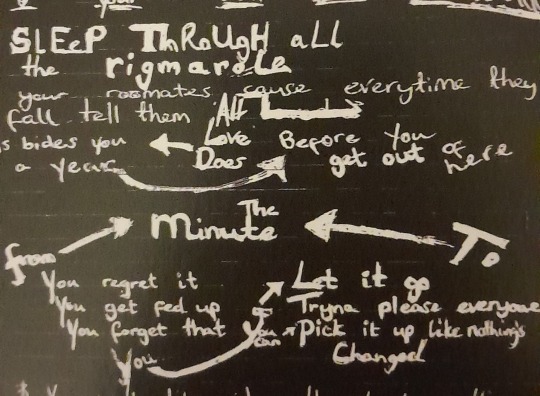 SLEEP ThRoUgH all
the rigmarole
your roomates cause everytime they
fall tell them All
Love Before you
s bides you Does get out of here
a year
The
Minute
from To
You regret it Let it go
You get fed up Tryna please everyone
You forget that You can Pick it up like nothing's
You Changed